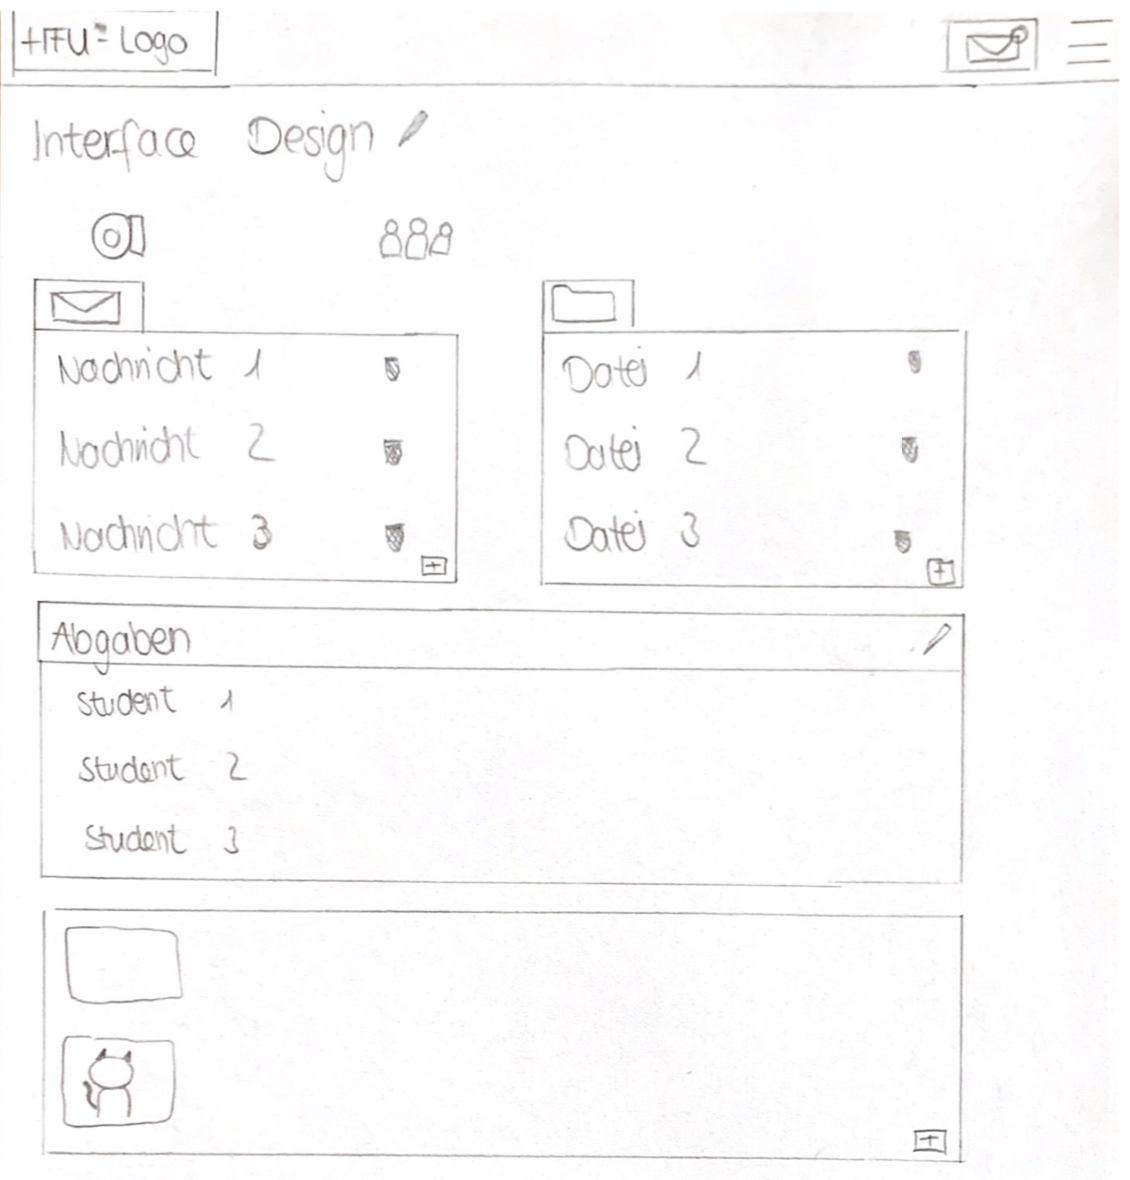 HFU-Logo
Interface Design
Nachricht 1
Nachricht 2
Nachricht 3
Datei 1
Datei 2
Datei 3
Abgaben
Student 1
Student 2
Student 3